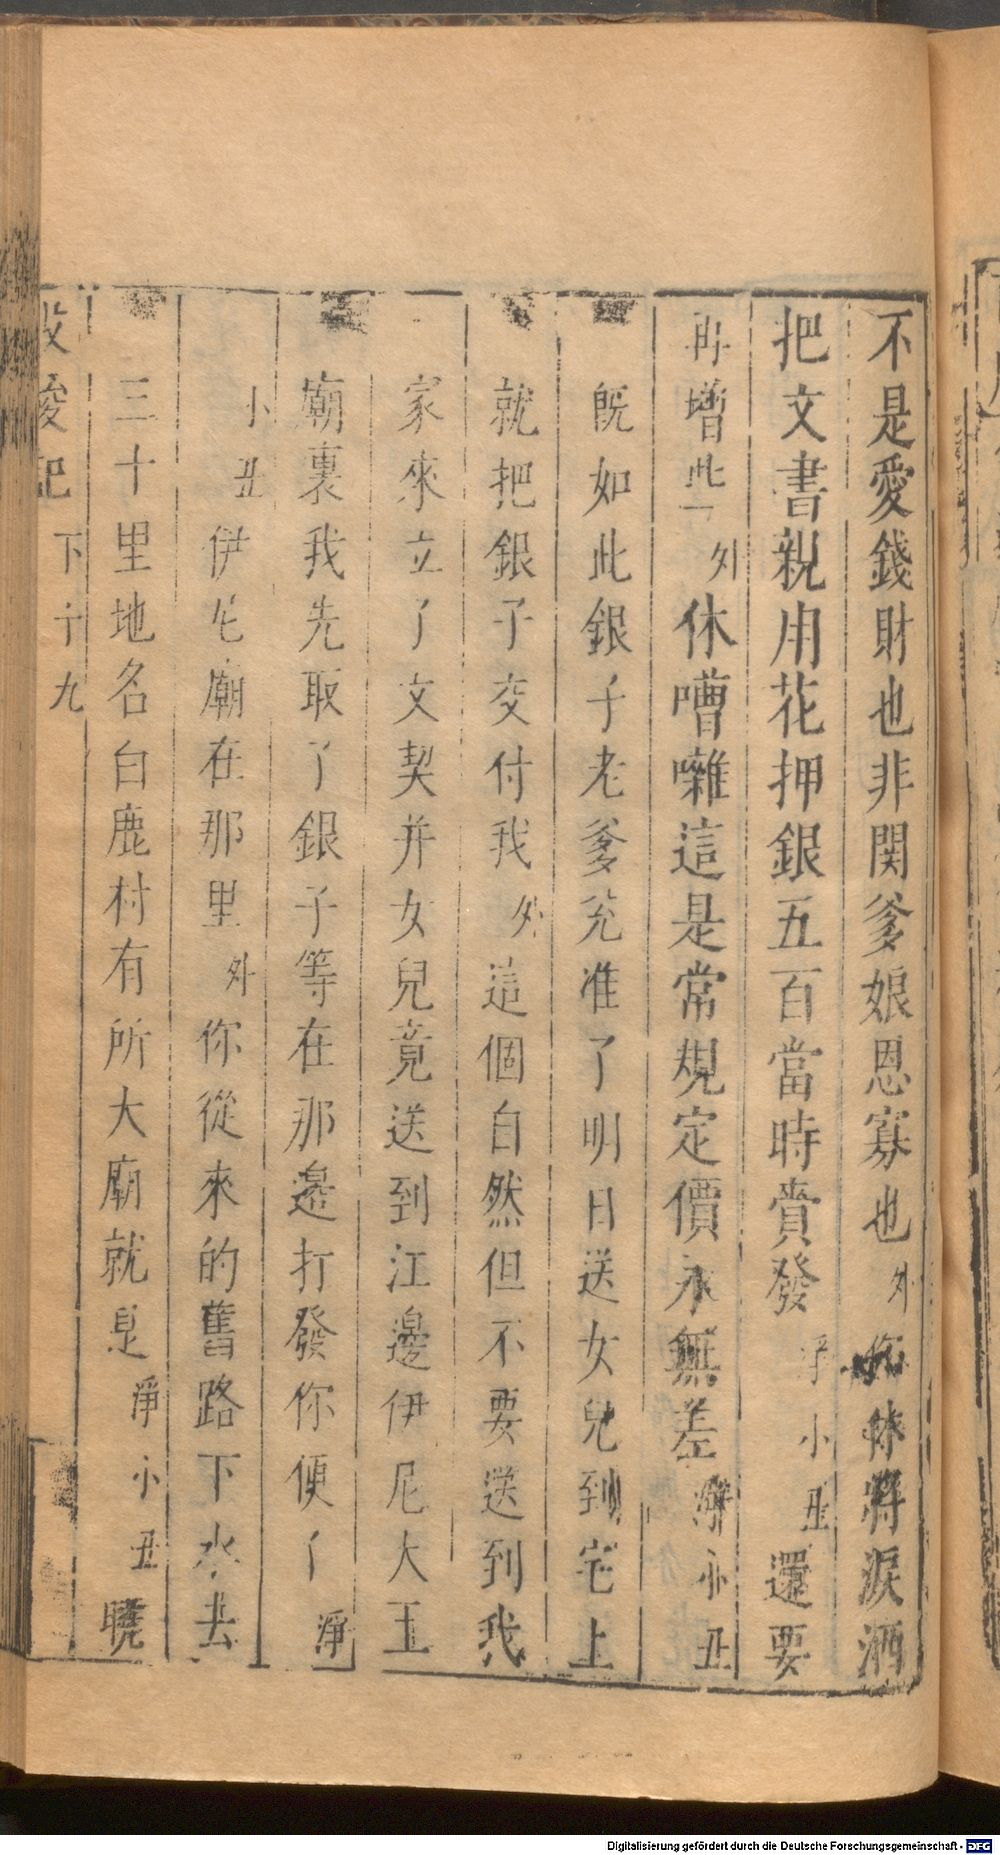 不是愛錢財也非関爹娘恩寡也外你休將淚洒
把文書親用花押銀五百當時賫發淨小丑還要
再增些外休嘈囃這是常規定價永無差淨小丑
既如此銀子老爹兊准了明日送女兒到宅上
就把銀子交付我外這個自然但不要送到我
家來立了文契并女兒竟送到江邊伊尼大王
廟裏我先取了銀子等在那邊打發你便了淨
小丑伊尼廟在那里外你從來的舊路下水去
三十里地名白鹿村有所大廟就是淨小丑曉
投梭記下十九
Digitalisierung gefördert durch die Deutsche Forschungsgemeinschaft - DFG